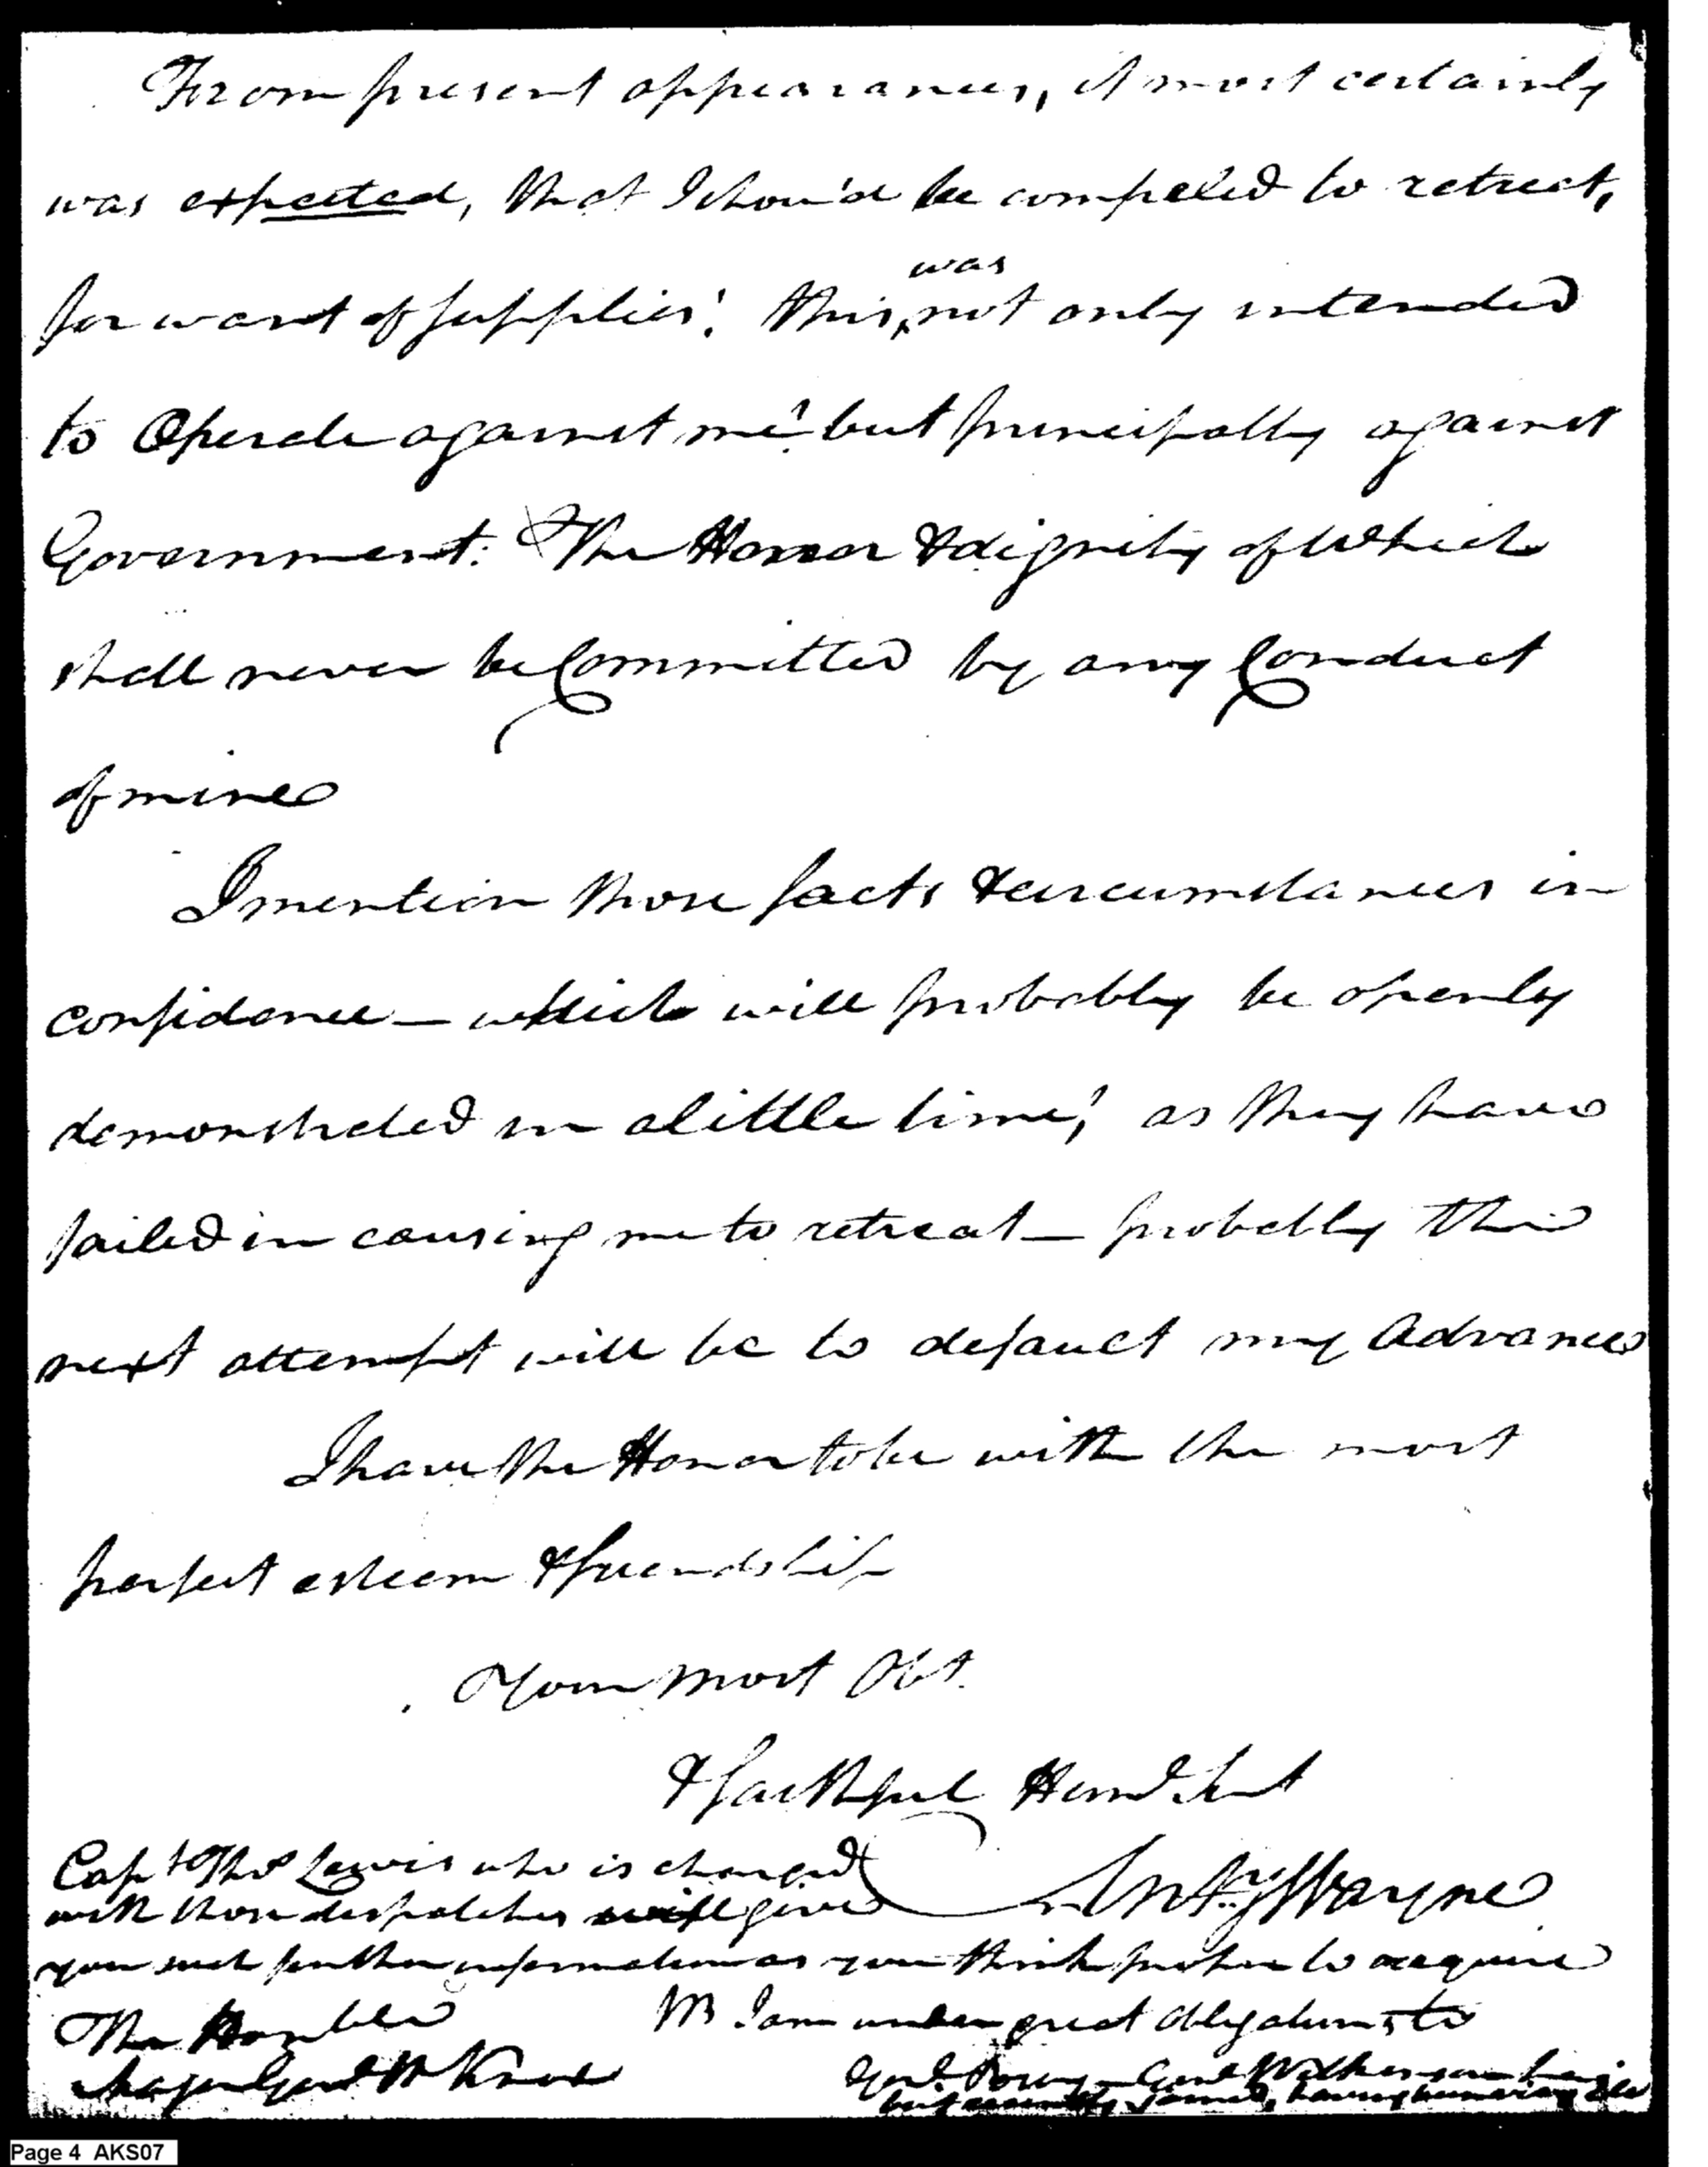 From present appearances, it most certainly
was expected, that I shou'd be compeled to retreat,
for want of supplies! this, was not only intended
to Operate against me! but principally against
Government: The Honor & dignity of Which
shall never be Committed by any Conduct
of mine
I mention those facts & circumstances in
confidence — which will probably be openly
demonstrated in a little time! as they have
failed in causing me to retreat — probably their
next attempt will be to my Advance
I have the Honor to be with the most
perfect esteem & friendship
Your most Obt.
& faithful Hum Sert
Capt Thos Lewis who is charged
Anty Wayne
with those despatches will give
you such further information as you think proper to acquire
The Honble
NB I am under great obligations to
Major Genl H Knox
Genl Posey — Genl Wilkinson
Page 4 AKS07